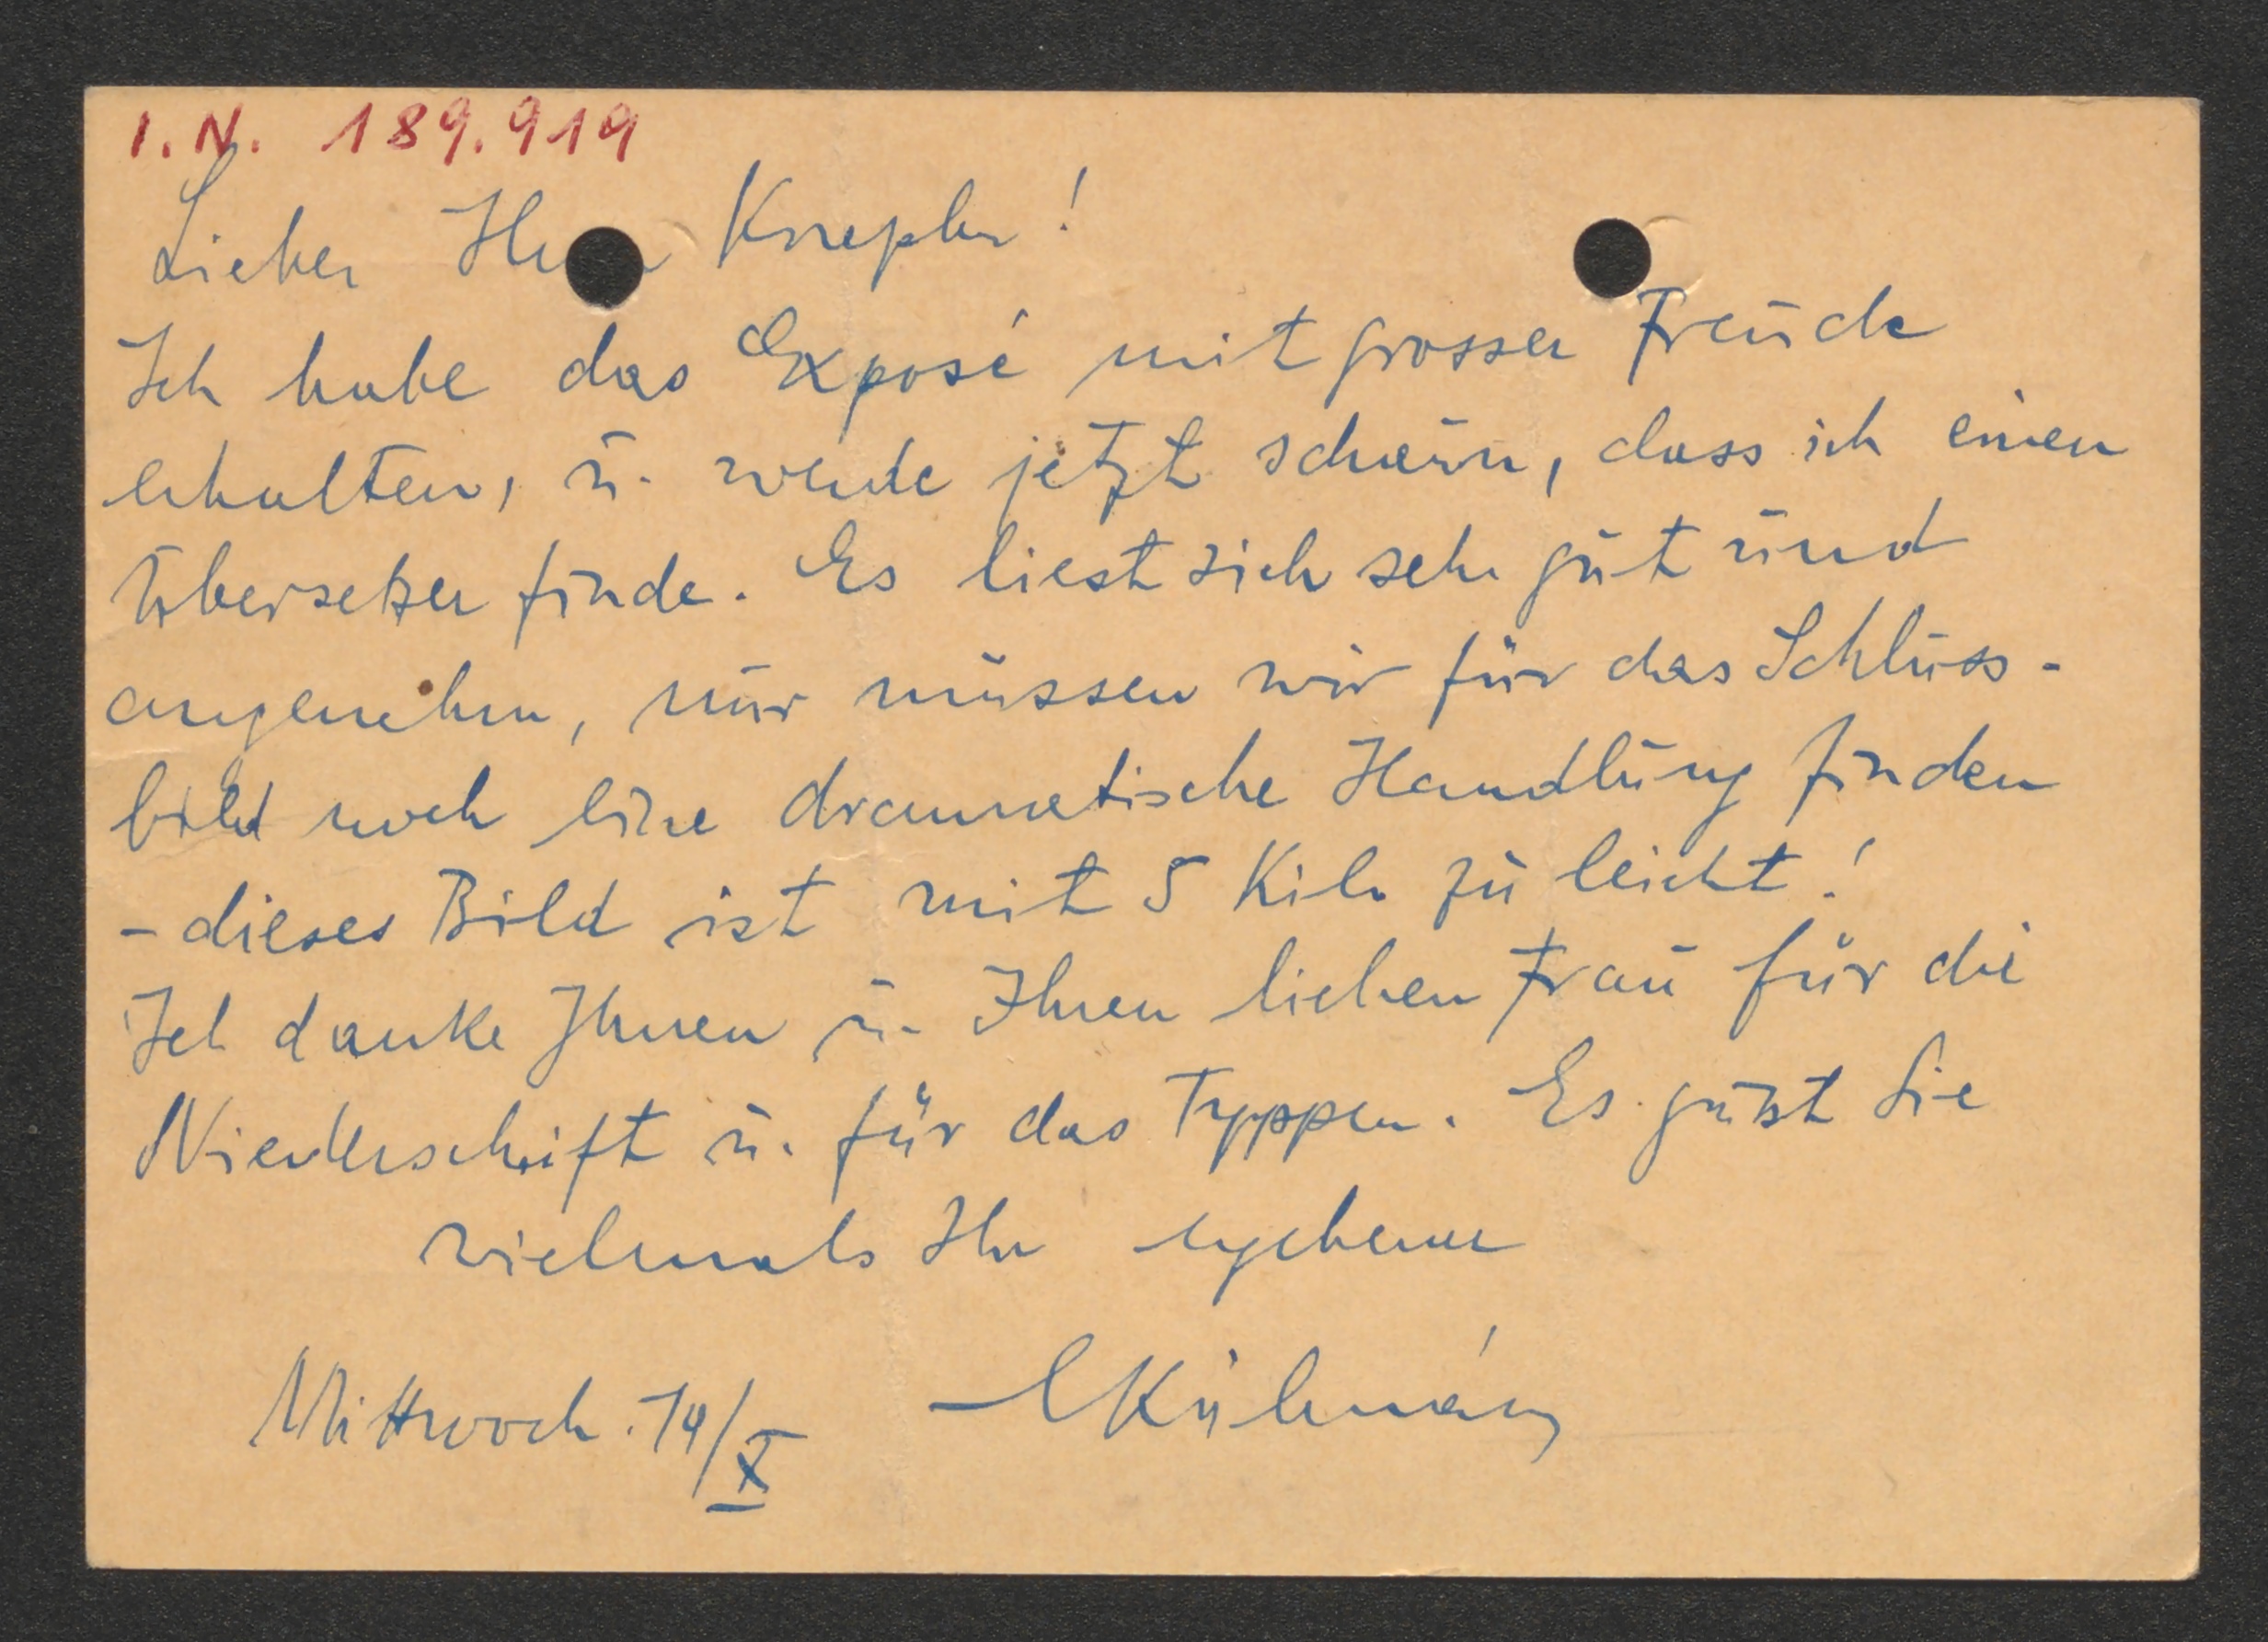 I.N. 189.919
Lieber Herr Knepler!
Ich habe das Exposé mit grosser Freude
erhalten, u. werde jetzt schaun, dass ich einen
Übersetzer finde. Es liest sich sehr gut und
angenehm, nur müssen wir für das Schluss-
bild noch eine dramatische Handlung finden
- dieses Bild ist mit 5 Kilo zu leicht!
Ich danke Ihnen u. Ihren lieben Frau für die
Niederschrift u. für das Typpen. Es grüsst Sie
vielmals Ihr ergebener
Kálmán
Mittwoch 14/X